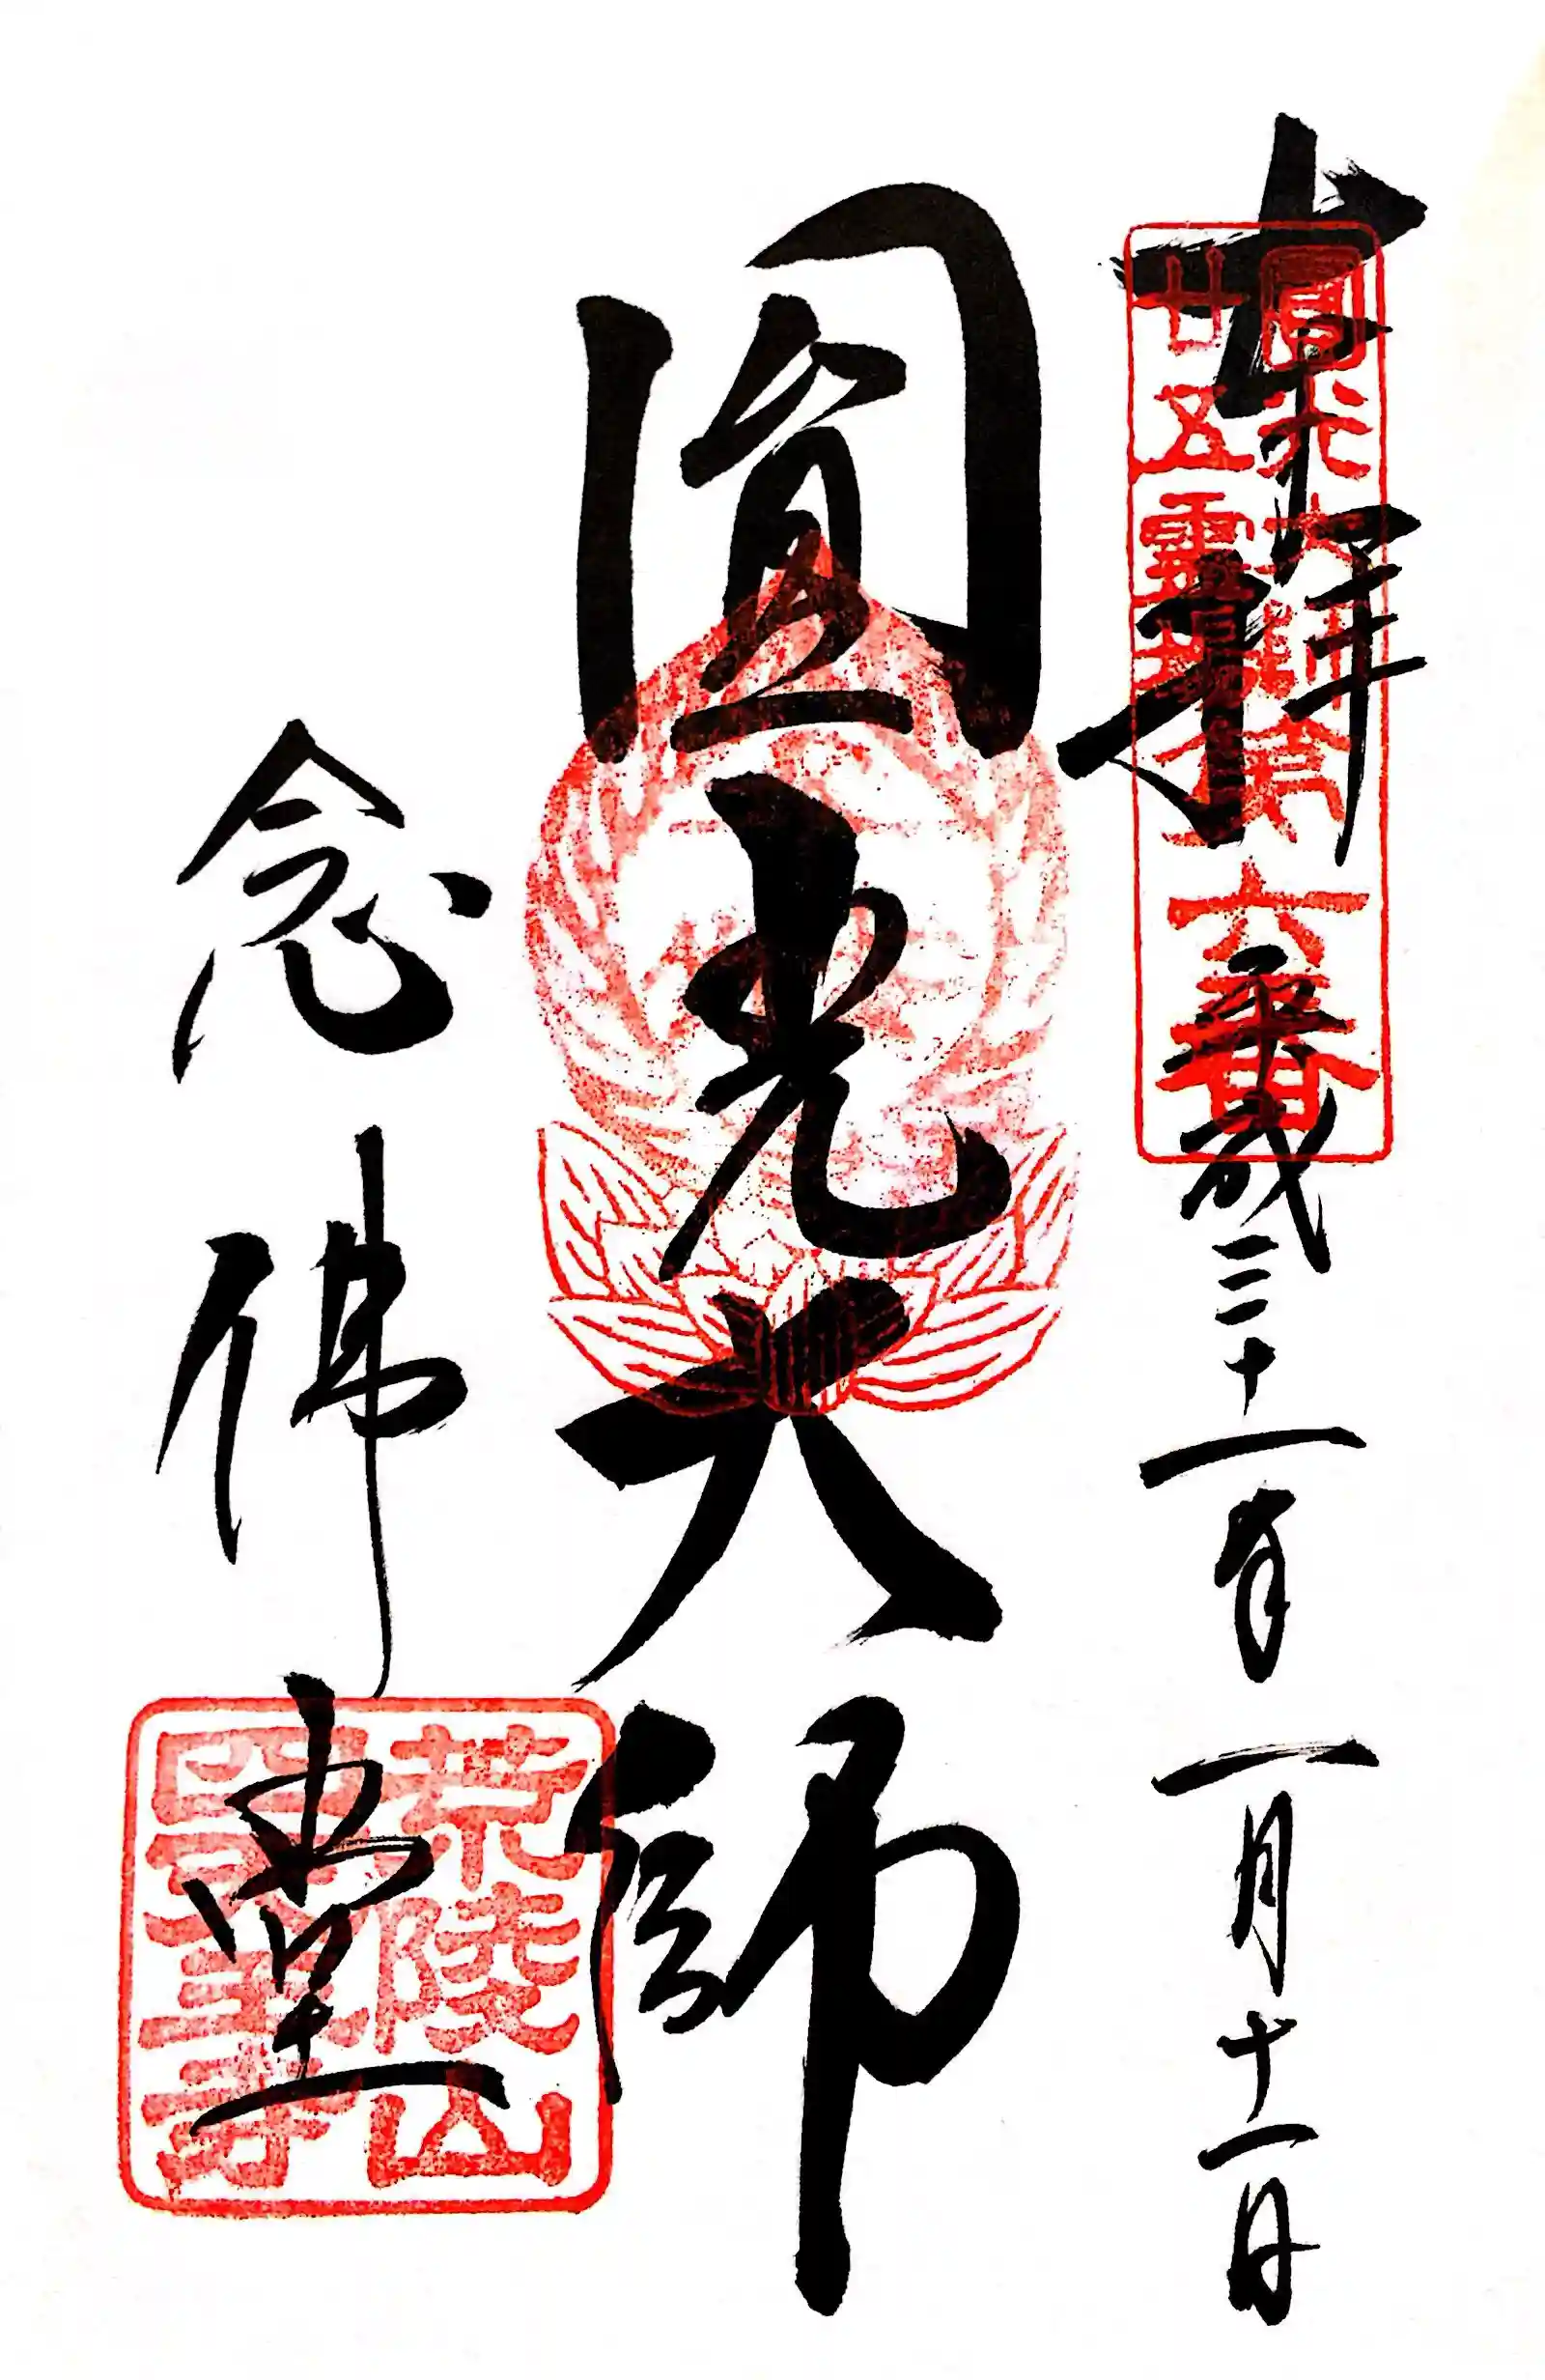 奉拝
平成三十一年一月十一日
圓光大師
廿五霊場第六番
圓光大師
念佛堂
荒陵山
四天王寺